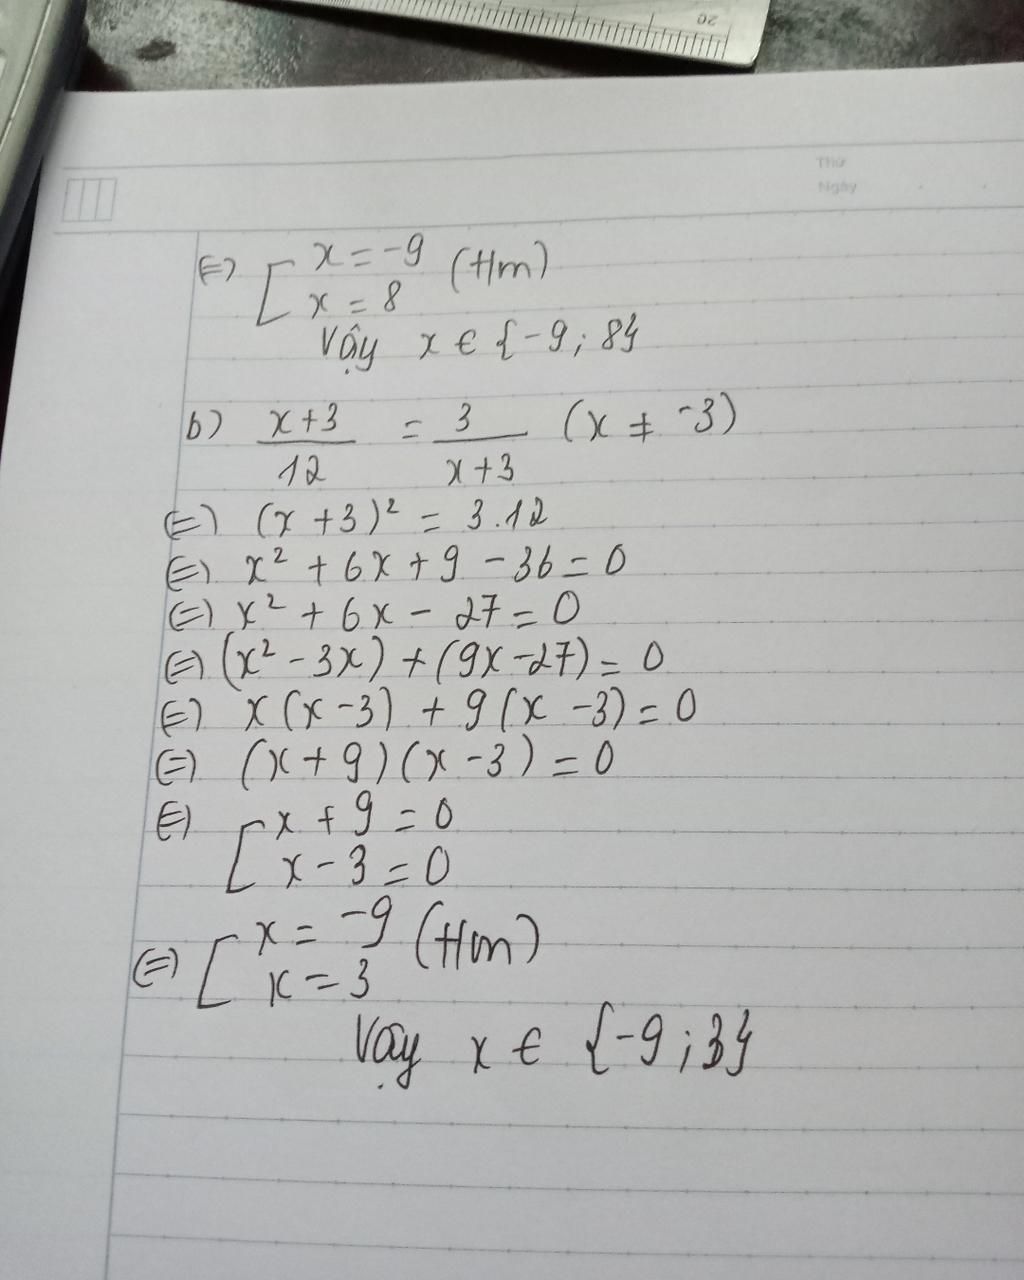 20
Thứ
Ngày
<=> [ x = -9
x = 8 (t/m)
Vậy x ∈ {-9; 8}
b) x+3/12 = 3/x+3 (x ≠ -3)
<=> (x+3)² = 3.12
<=> x² + 6x + 9 - 36 = 0
<=> x² + 6x - 27 = 0
<=> (x² - 3x) + (9x - 27) = 0
<=> x(x-3) + 9(x-3) = 0
<=> (x+9)(x-3) = 0
<=> [ x + 9 = 0
x - 3 = 0
<=> [ x = -9
x = 3 (t/m)
Vậy x ∈ {-9; 3}